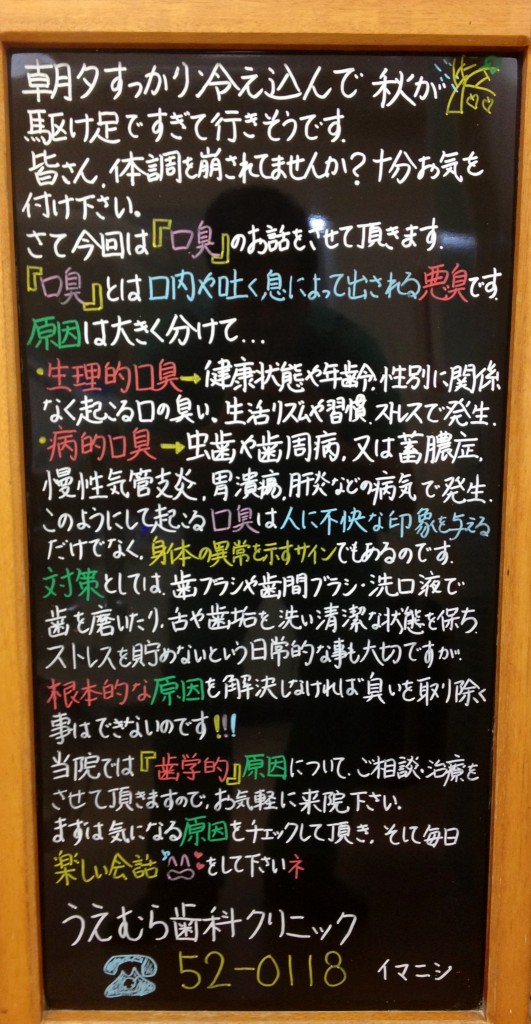 朝夕すっかり冷え込んで秋が
駆け足ですぎて行きそうです。
皆さん、体調を崩されてませんか?十分お気を
付け下さい。
さて今回は『口臭』のお話をさせて頂きます。
『口臭』とは口内や吐く息によって出される悪臭です
原因は大きく分けて…
・生理的口臭→健康状態や年齢、性別に関係
なく起こる口の臭い、生活リズムや習慣、ストレスで発生.
・病的口臭→虫歯や歯周病、又は蓄膿症,
慢性気管支炎,胃潰瘍,肝炎などの病気で発生.
このようにして起こる口臭は人に不快な印象を与える
だけでなく、身体の異常を示すサインでもあるのです.
対策としては、歯ブラシや歯間ブラシ・洗口液で
歯を磨いたり、舌や歯垢を洗い清潔な状態を保ち、
ストレスを貯めないという日常的な事も大切ですが、
根本的な原因を解決しなければ臭いを取り除く
事はできないのです!!!
当院では『歯学的』原因について、ご相談・治療を
させて頂きますので、お気軽に来院下さい。
まずは気になる原因をチェックして頂き、そして毎日
楽しい会話をして下さいネ
うえむら歯科クリニック
52-0118 イマニシ